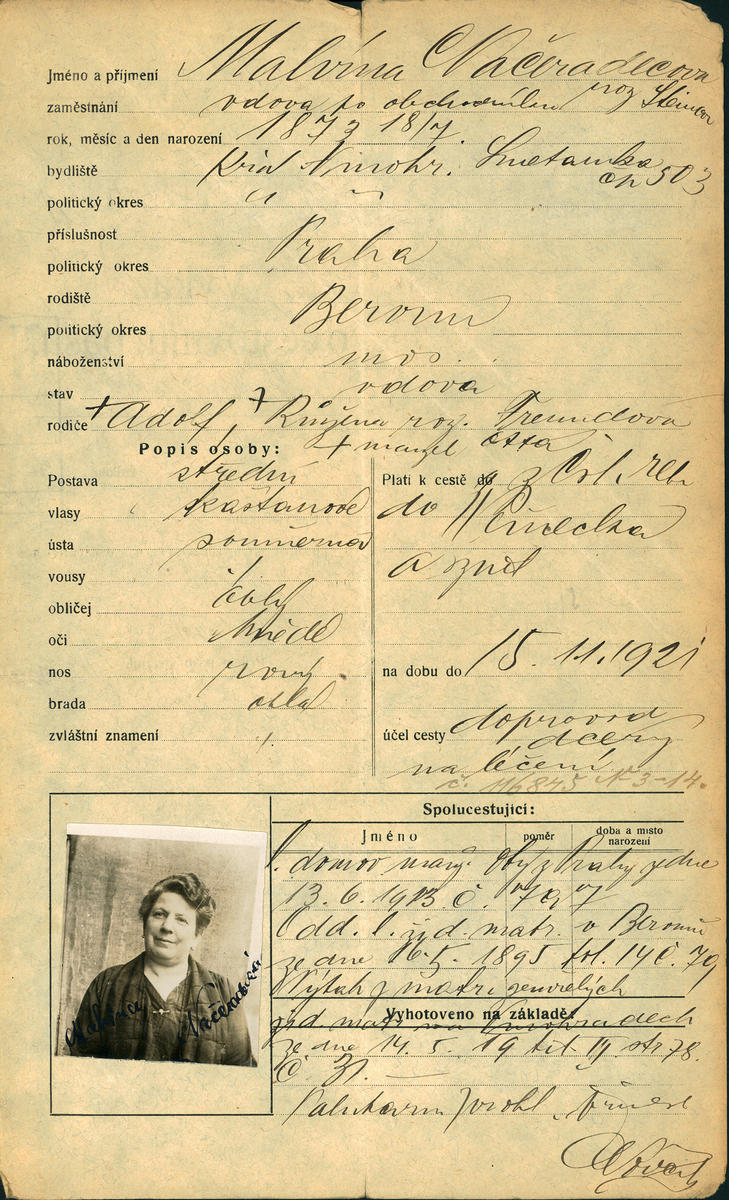 Jméno a příjmení Malvína Načeradecová
zaměstnání vdova po obchodníku roz
rok, měsíc a den narození 1873 18/7.
bydliště Král Vinohr. Smetanka
čp 503
politický okres " "
příslušnost
politický okres Praha
rodiště
politický okres Beroun
náboženství mos.
stav vdova
rodiče + Adolf, + Růžena roz. Freundova
+ manžel Otta
Popis osoby:
Postava střední
vlasy kaštanové
ústa souměrná
vousy /
obličej oblý
oči hnědé
nos rovný
brada oblá
zvláštní znamení
Platí k cestě do z Čsl. rep
do Německa
a zpět
na dobu do 15. 11. 1921
účel cesty doprovod
dcery
na léčení
č. 116845 N 3-14.
Spolucestující:
Jméno poměr doba a místo
narození
domov. obce z Prahy ze dne
13. 6. 1913 č.
Odd. l. žid. matr. v Berouně
ze dne 1895 fol. 14 č. 79
Výtah z matri zemřelých
Vyhotoveno na základě:
žid matr na Vinohradech
ze dne 14. 5. 19 str 78.
č.
Malvína Načeradecová